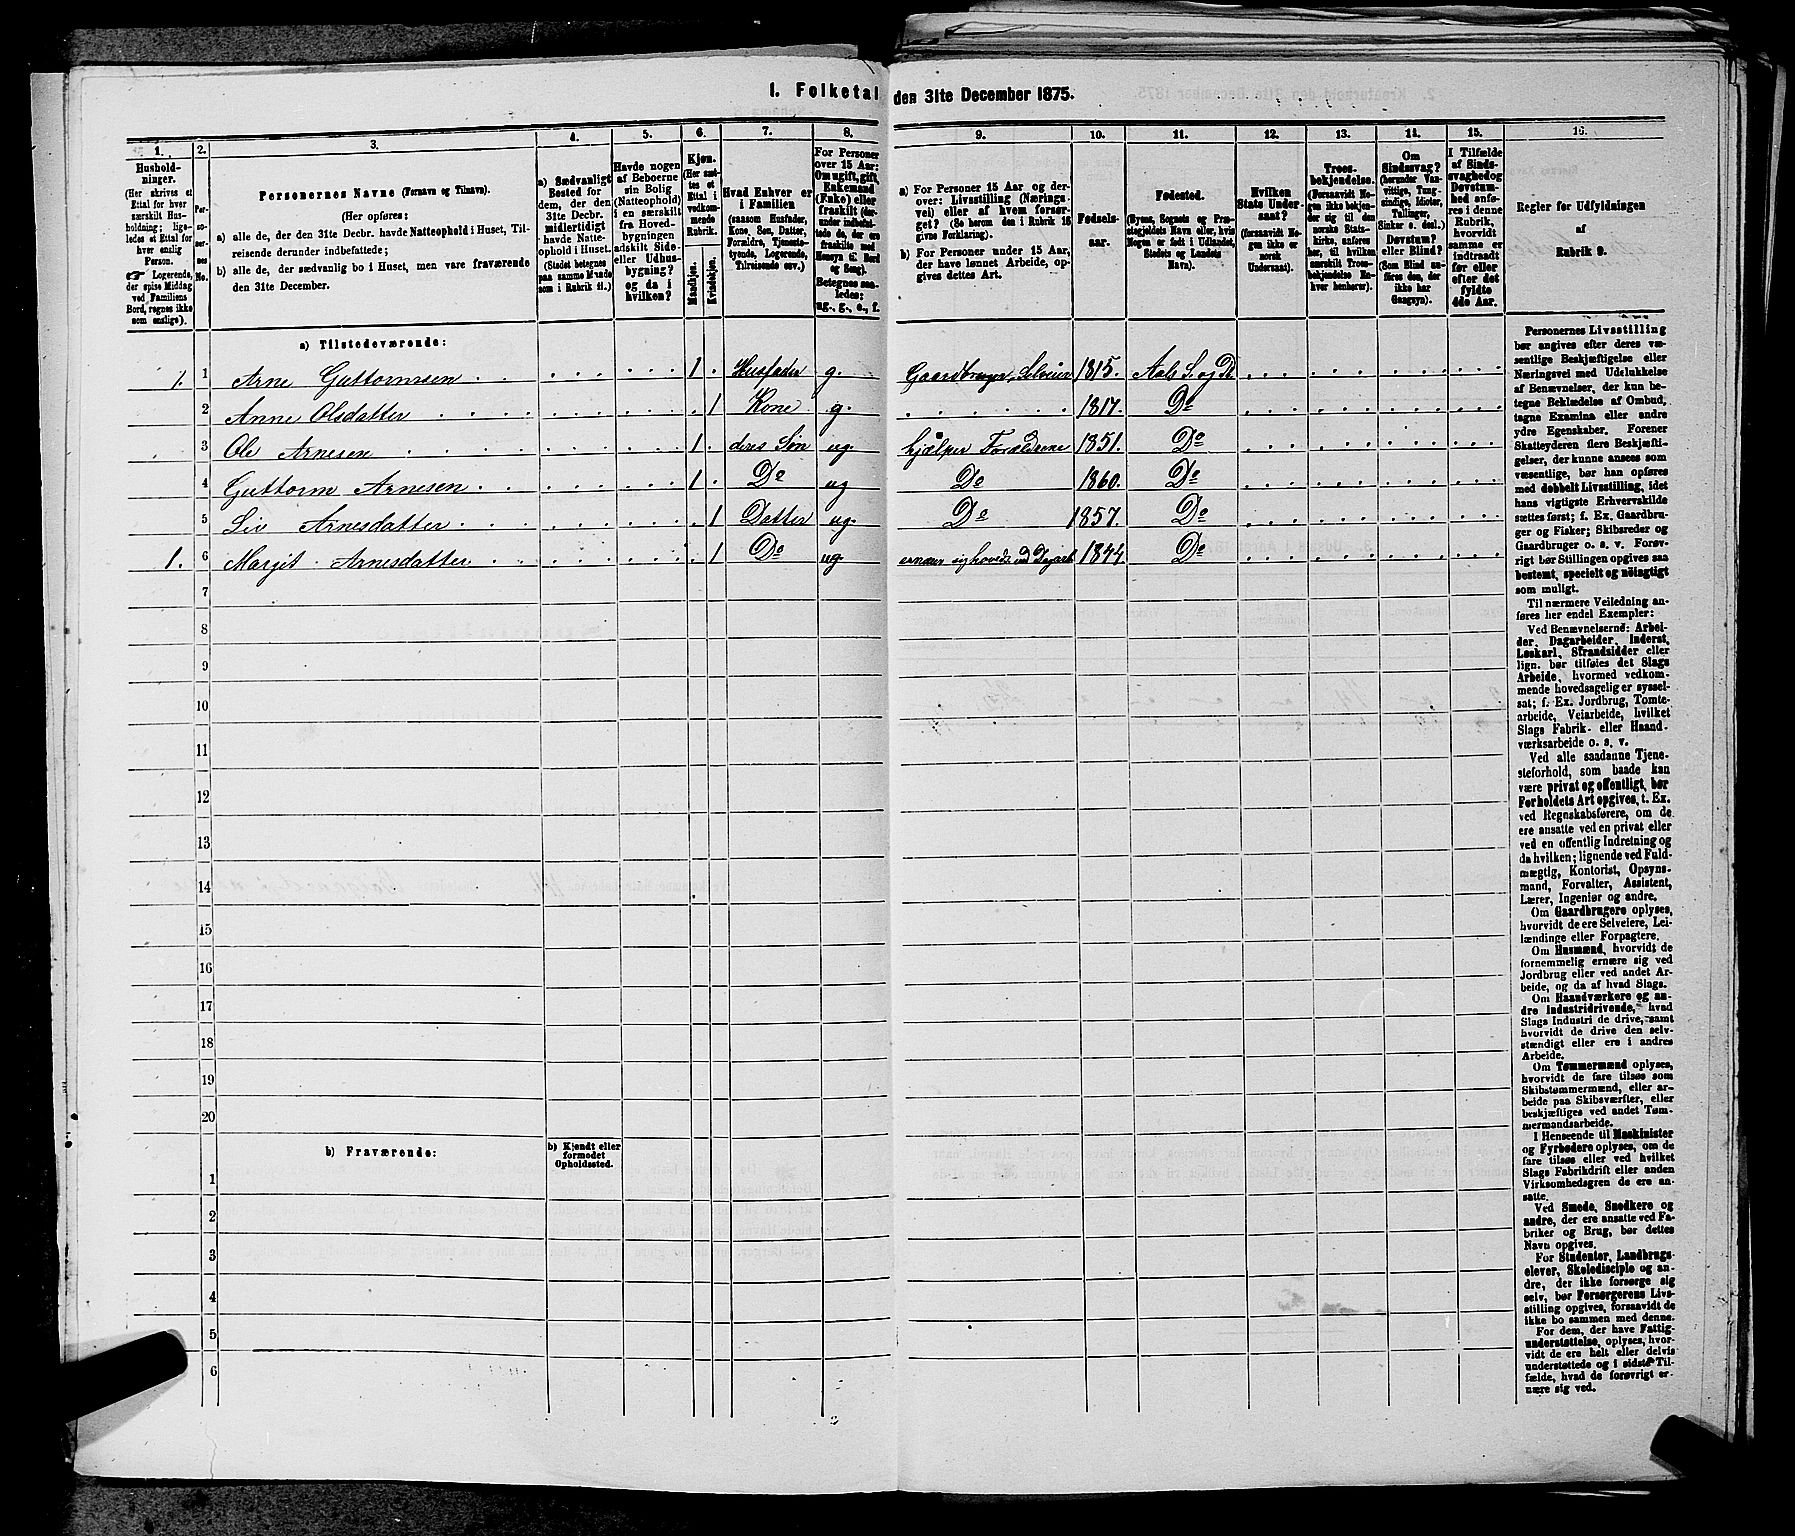 1. Folketal den 31te December 1875.
1. 2. 3. 4. 5. 6. 7. 8. 9. 10. 11. 12. 13. 14. 15. 16.
Hushold-
ninger.
(Her skrives et
Ettal for hver
særskilt Hus-
holdning; lige-
ledes et Ettal for
hver enslig
Person.
☞ Logerende,
der spise Middag
ved Familiens
Bord, regnes ikke
som enslige).
Per-
so-
ner-
nes
No.
Personernes Navne (Fornavn og Tilnavn).
(Her opføres:
a) alle de, der den 31te Decbr. havde Natteophold i Huset, Til-
reisende derunder indbefattede;
b) alle de, der sædvanlig bo i Huset, men vare fraværende
den 31te December.
a) Sædvanligt
Bosted for
dem, der den
31te Decbr.
midlertidigt
havde Natte-
ophold i Huset.
(Stedet betegnes
paa samme Maade
som i Rubrik 11.)
Havde nogen
af Beboerne
sin Bolig
(Natteophold)
i en særskilt
fra Hoved-
bygningen
adskilt Side-
eller Udhus-
bygning?
og da i
hvilken?
Kjøn.
(Her sæt-
tes et
Ettal i
vedkom-
mende
Rubrik.
Mandkjøn.
Kvindekjøn.
Hvad Enhver er
i Familien
(saasom Husfader,
Kone, Søn, Datter,
Forældre, Tjeneste-
tyende, Logerende,
Tilreisende osv.)
For Personer
over 15 Aar:
Om ugift, gift,
Enkemand
(Enke) eller
fraskilt
Betegnes saa-
ledes:
ug., g., e., f.
a) For Personer 15 Aar og der-
over: Livsstilling (Nærings-
vei) eller af hvem forsør-
get? (Se herom den i Rubrik 16
givne Forklaring).
b) For Personer under 15 Aar,
der have lønnet Arbeide, op-
gives dettes Art.
Fødsels-
aar.
Fødested.
(Byens, Sognets og Præ-
stegjeldets Navn eller, hvis
Nogen er født i Udlandet,
Stedets og Landets
Navn).
Hvilken
Stats Under-
saat?
(forsaavidt No-
gen ikke er
norsk
Undersaat).
Troes-
bekjendelse.
(Forsaavidt No-
gen ikke bekjen-
der sig til den
norske Stats-
kirke, anføres
her, til hvilken
særskilt Troes-
bekjendelse En-
hver henhører).
Om
Sindssvag?
(herunder Van-
vittige, Tung-
sindige, Idioter,
Tullinger,
Sinker o. desl.)
Døvstum?
eller Blind?
(Som Blind an-
føres den, der
ikke har
Gangsyn).
I Tilfælde
af Sinds-
svaghed og
Døvstum-
hed anføres
i denne
Rubrik,
hvorvidt
samme er
indtraadt
før eller
efter det
fyldte
4de Aar.
Regler for Udfyldningen
af
Rubrik 9.
a) Tilstedeværende:
1. 1 Arne Guttormsen 1 Husfader g. Gaardbruger, Selveier 1815. Aals S. og P.
2 Anne Olsdatter 1 Kone g. 1817. Do
3 Ole Arnesen 1 deres Søn ug. hjælper Forældrene 1851. Do
4 Guttorm Arnesen 1 Do ug Do 1860. Do
5 Liv Arnesdatter 1 Datter ug. Do 1857. Do
1. 6 Margit Arnesdatter 1 Do ug 1844. Do
7
8
9
10
11
12
13
14
15
16
17
18
19
20
b) Fraværende:
b) Kjendt eller
formodet
Opholdssted.
1
2
3
4
5
6
Personernes Livsstilling
bør angives efter deres væ-
sentlige Beskjæftigelse eller
Næringsvei med Udelukkelse
af Benævnelser, der kun be-
tegne Beklædelse af Ombud,
tagne Examina eller andre
ydre Egenskaber. Forener
Skatteyderen flere Beskjæfti-
gelser, der kunne ansees som
væsentlige, bør han opføres
med dobbelt Livsstilling, idet
hans vigtigste Erhvervskilde
sættes først; f. Ex. Gaardbru-
ger og Fisker; Skibsreder og
Gaardbruger o. s. v. Forøv-
rigt bør Stillingen opgives saa
bestemt, specielt og nøiagtigt
som muligt.
Til nærmere Veiledning an-
føres her endel Exempler:
Ved Benævnelserne: Arbei-
der, Dagarbeider, Inderst,
Løskarl, Strandsidder eller
lign. bør tilføies det Slags
Arbeide, hvormed vedkom-
mende hovedsagelig er syssel-
sat; f. Ex. Jordbrug, Tomte-
arbeide, Veiarbeide, hvilket
Slags Fabrik- eller Haand-
værksarbeide o. s. v.
Ved alle saadanne Tjene-
steforhold, som baade kan
være privat og offentligt, bør
Forholdets Art opgives, t. Ex.
ved Regnskabsførere, om de
ere ansatte ved en privat eller
ved en offentlig Indretning og
da hvilken; lignende ved Fuld-
mægtig, Kontorist, Opsyns-
mand, Forvalter, Assistent,
Lærer, Ingeniør og andre.
Om Gaardbrugere oplyses,
hvorvidt de ere Selveiere, Lei-
lændinge eller Forpagtere.
Om Husmænd, hvorvidt de
fornemmelig ernære sig ved
Jordbrug eller ved andet Ar-
beide, og da af hvad Slags.
Om Haandværkere og an-
dre Industridrivende, hvad
Slags Industri de drive, samt
hvorvidt de drive den selv-
stændigt eller ere i andres
Arbeide.
Om Tømmermænd oplyses,
hvorvidt de fare tilsøs som
Skibstømmermænd, eller ar-
beide paa Skibsværfter, eller
beskjæftiges ved andet Tøm-
mermandsarbeide.
I Henseende til Maskinister
og Fyrbødere oplyses, om de
fare tilsøs eller ved hvilket
Slags Fabrikdrift eller anden
Virksomhedsgren de ere an-
satte.
Ved Smede, Snedkere og
andre, der ere ansatte ved Fa-
briker og Brug, bør dettes
Navn opgives.
For Studenter, Landbrugs-
elever, Skoledisciple og an-
dre, der ikke forsørge sig
selv, bør Forsørgerens Livs-
stilling opgives, forsaavidt de
ikke bo sammen med denne.
For dem, der have Fattig-
understøttelse, oplyses, hvor-
vidt de ere helt eller delvis
understøttede og i sidste Til-
fælde, hvad de forøvrigt er-
nære sig ved.